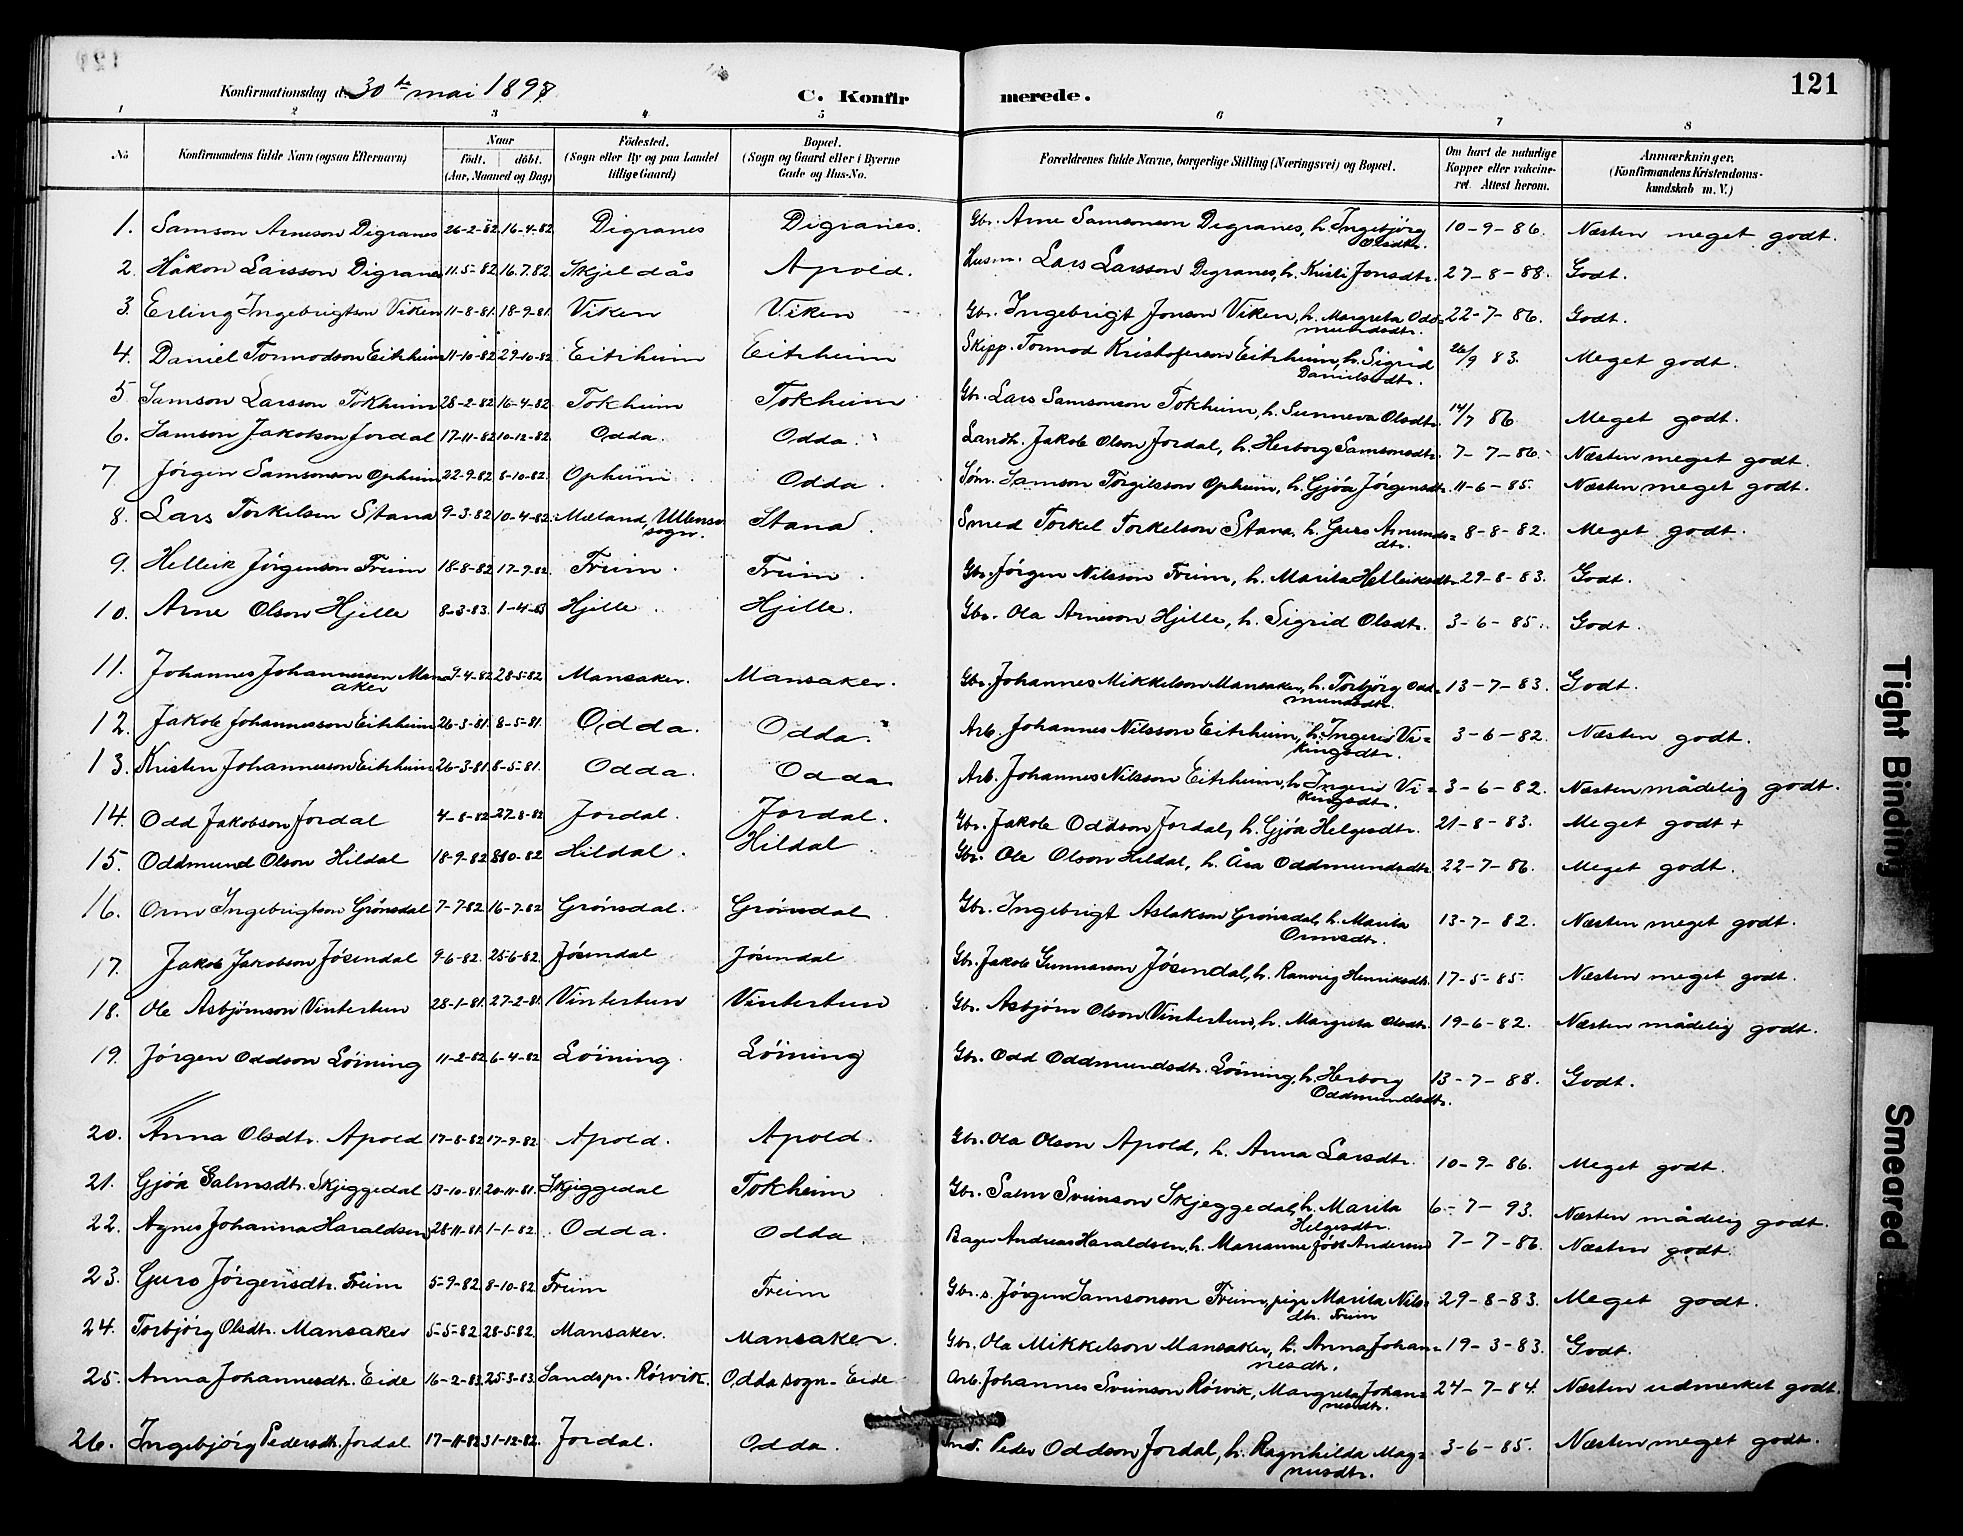 121
Konfirmationsdag d. 30te mai 1897.
C. Konfirmerede.
1 2 3 4 5 6 7 8
No Konfirmandens fulde Navn (ogsaa Efternavn) Naar født. døbt. (Aar, Maaned og Dag) Fødested. (Sogn eller By og paa Landet tillige Gaard) Bopæl. (Sogn og Gaard eller i Byerne Gade og Hus-No. Forældrenes fulde Navne, borgerlige Stilling (Næringsvei) og Bopæl. Om havt de naturlige Kopper eller vakcineret. Attest herom. Anmærkninger. (Konfirmandens Kristendomskundskab m. V.)
1. Samson Arneson Digranes 26-2-82 16-4-82 Digranes Digranes. Gbr. Arne Samsonson Digranes, h. Ingebjörg Olsdtr. 10-9-86. Næsten meget godt.
2. Håkon Larsson Digranes 11-5-82 16.7.82 Skjeldås Apold. Husm. Lars Larsson Digranes, h. Kristi Jonsdtr. 27-8-88. Godt.
3. Erling Ingebrigtson Viken 11-8-81. 18-9-81. Viken Viken Gbr. Ingebrigt Jonson Viken, h. Margreta Oddmundsdtr. 22-7-86. Godt.
4. Daniel Tormodson Eitrheim 11-10-82 29-10-82 Eitrheim Eitrheim Skipp. Tormod Kristoferson Eitrheim, h. Sigrid Danielsdtr. 26/9 83. Meget godt.
5 Samson Larsson Tokheim 28-2-82 16-4-82 Tokheim Tokheim Gbr. Lars Samsonson Tokheim, h. Sunneva Olsdtr. 14/7 86 Meget godt.
6. Samson Jakobson Jordal 17-11-82 10-12-82 Odda. Odda. Landh. Jakob Olson Jordal, h. Herborg Samsonsdtr. 7-7-86. Næsten meget godt.
7 Jörgen Samsonson Opheim 22-9-82 8-10-82. Opheim Odda. Sön. Samson Torgilsson Opheim, h. Gjöa Jörgensdtr. 11-6-85. Næsten meget godt.
8. Lars Torkelsen Stana 9-3-82 10-4-82. Mæland, Ullensv. sogn. Stana. Smed Torkel Torkelson Stana, h. Guro Amundsdtr. 8-8-82. Meget godt.
9. Helleik Jörgenson Freim 18-8-82 17-9-82. Freim. Freim. Gbr. Jörgen Nilsson Freim, h. Marita Helleiksdtr. 29-8-83. Godt.
10. Arne Olson Hjelle 8-3-83. 1-4-83 Hjelle. Hjelle. Gbr. Ola Arneson Hjelle, h. Sigrid Olsdtr. 3-6-85. Godt.
11. Johannes Johannessen Mansaker 9-4-82 28-5-82. Mansaker. Mansaker. Gbr. Johannes Mikkelson Mansaker, h. Torbjörg Oddmundsdtr. 13-7-83. Godt.
12. Jakob Johannesson Eitrheim 26-3-81. 8-5-81. Odda. Odda. Arb. Johannes Nilsson Eitrheim, h. Ingerid Vikingsdtr. 3-6-82. Næsten godt.
13. Kristen Johannesson Eitrheim 26-3-81. 8-5-81. Odda. Odda Arb. Johannes Nilsson Eitrheim, h. Ingerid Vikingsdtr. 3-6-82. Næsten mådelig godt.
14. Odd Jakobson Jordal 4-8-82 27-8-82 Jordal. Jordal. Gbr. Jakob Oddson Jordal, h. Gjöa Helgesdtr. 21-8-83. Meget godt+
15. Oddmund Olson Hildal 18-9-82 8-10-82 Hildal. Hildal Gbr. Ole Olson Hildal, h. Åsa Oddmundsdtr. 22-7-86. Meget godt.
16. Orm Ingebrigtson Grönsdal 7-7-82 16-7-82 Grönsdal. Grönsdal Gbr. Ingebrigt Aslakson Grönsdal, h. Marita Ormsdtr. 13-7-82. Næsten meget godt.
17. Jakob Jakobson Jösendal 9-6-82. 25-6-82. Jösendal Jösendal Gbr. Jakob Gunnarson Jösendal, h. Ranveig Henriksdtr. 17-5-85. Næsten meget godt.
18. Ole Asbjörnson Vintertun 28-1-81. 27-2-81. Vintertun Vintertun Gbr. Asbjörn Olson Vintertun, h. Margreta Olsdtr. 19-6-82. Næsten mådelig godt.
19. Jörgen Oddson Löining 11-2-82. 6-4-82 Löining. Löining Gbr. Odd Oddmundsdtr. Löining, h. Herborg Oddmundsdtr. 13-7-88. Godt.
20. Anna Olsdtr. Apold 17-8-82 17-9-82. Apold. Apold. Gbr. Ola Olson Apold, h. Anna Larsdtr. 10-9-86. Meget godt.
21. Gjöa Salmsdtr. Skjeggedal 13-10-81. 20-11-81. Skjeggedal Tokheim Gbr. Salm Sveinson Skjeggedal, h. Marita Helgesdtr. 6-7-93. Næsten mådelig godt.
22. Agnes Johanna Haraldsen 28-11-81. 1-1-82. Odda. Odda Bager Andreas Haraldsen, h. Marianne født Andersen 7-7-86. Næsten godt.
23. Guro Jörgensdtr. Freim 5-9-82. 8-10-82. Freim Freim Gbr. s. Jörgen Samsonson Freim, pige Marita Nilsdtr. Freim 29-8-83. Meget godt.
24. Torbjörg Olsdtr. Mansaker 5-5-82 28-5-82. Mansaker. Mansaker. Gbr. Ola Mikkelson Mansaker, h. Anna Johannesdtr. 19-3-83. Godt.
25. Anna Johannesdtr. Eide 16-2-83 25-3-83. Sandspr. Rörvik. Odda sogn-Eide Arb. Johannes Sveinson Rörvik, Margreta Johannesdtr. 24-7-84. Næsten udmerket godt.
26. Ingebjörg Pedersdtr. Jordal 17-11-82 31-12-82. Jordal. Odda. Peder Oddson Jordal, h. Ragnhilda Magnusdtr. 3-6-85. Næsten meget godt.
Tight Binding
Smeared